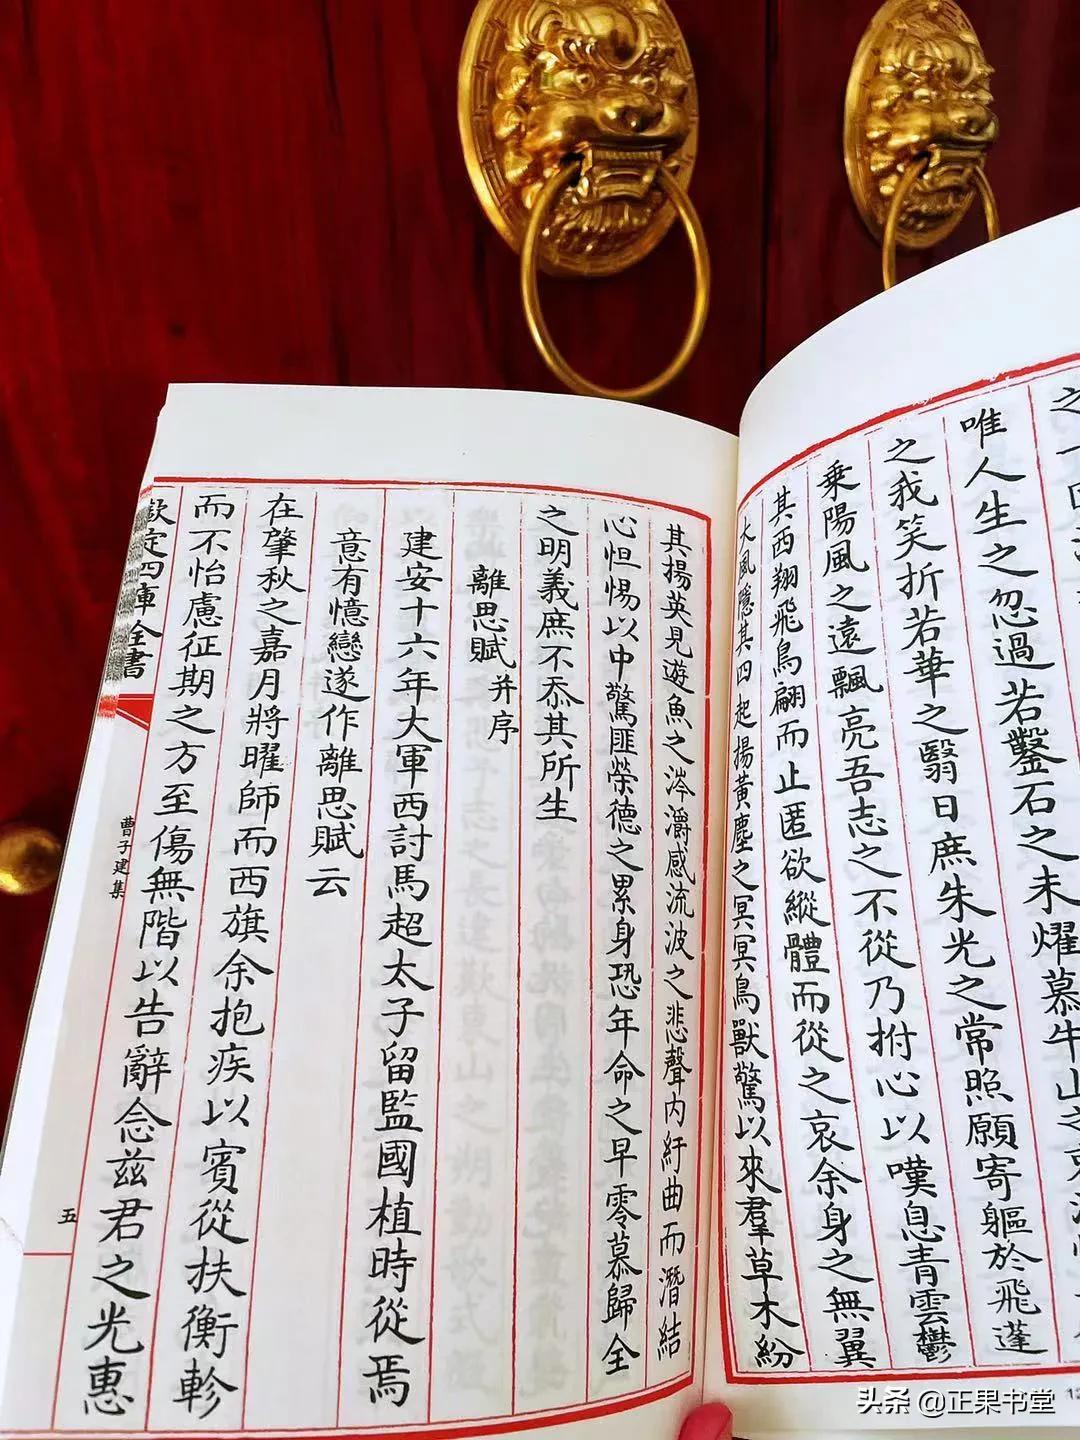 唯人生之忽過若鑿石之未耀慕牛山之
之我笑折若華之翳日庶朱光之常照願寄軀於飛蓬
乗陽風之遠飄亮吾志之不從乃拊心以嘆息青雲鬱
其西翔飛鳥翩而止匿欲縱體而從之哀余身之無翼
大風隱其四起揚黃塵之冥冥鳥獸驚以來羣草木紛
其揚英見遊魚之涔灂感流波之悲聲內紆曲而潛結
心怛惕以中驚匪榮德之累身恐年命之早零慕歸全
之明義庶不忝其所生
離思賦并序
建安十六年大軍西討馬超太子留監國植時從焉
意有憶戀遂作離思賦云
在肇秋之嘉月將曜師而西旗余抱疾以賓從扶衡軫
而不怡慮征期之方至傷無階以告辭念茲君之光惠
欽定四庫全書
曹子建集
五
12
头条 @正果书堂